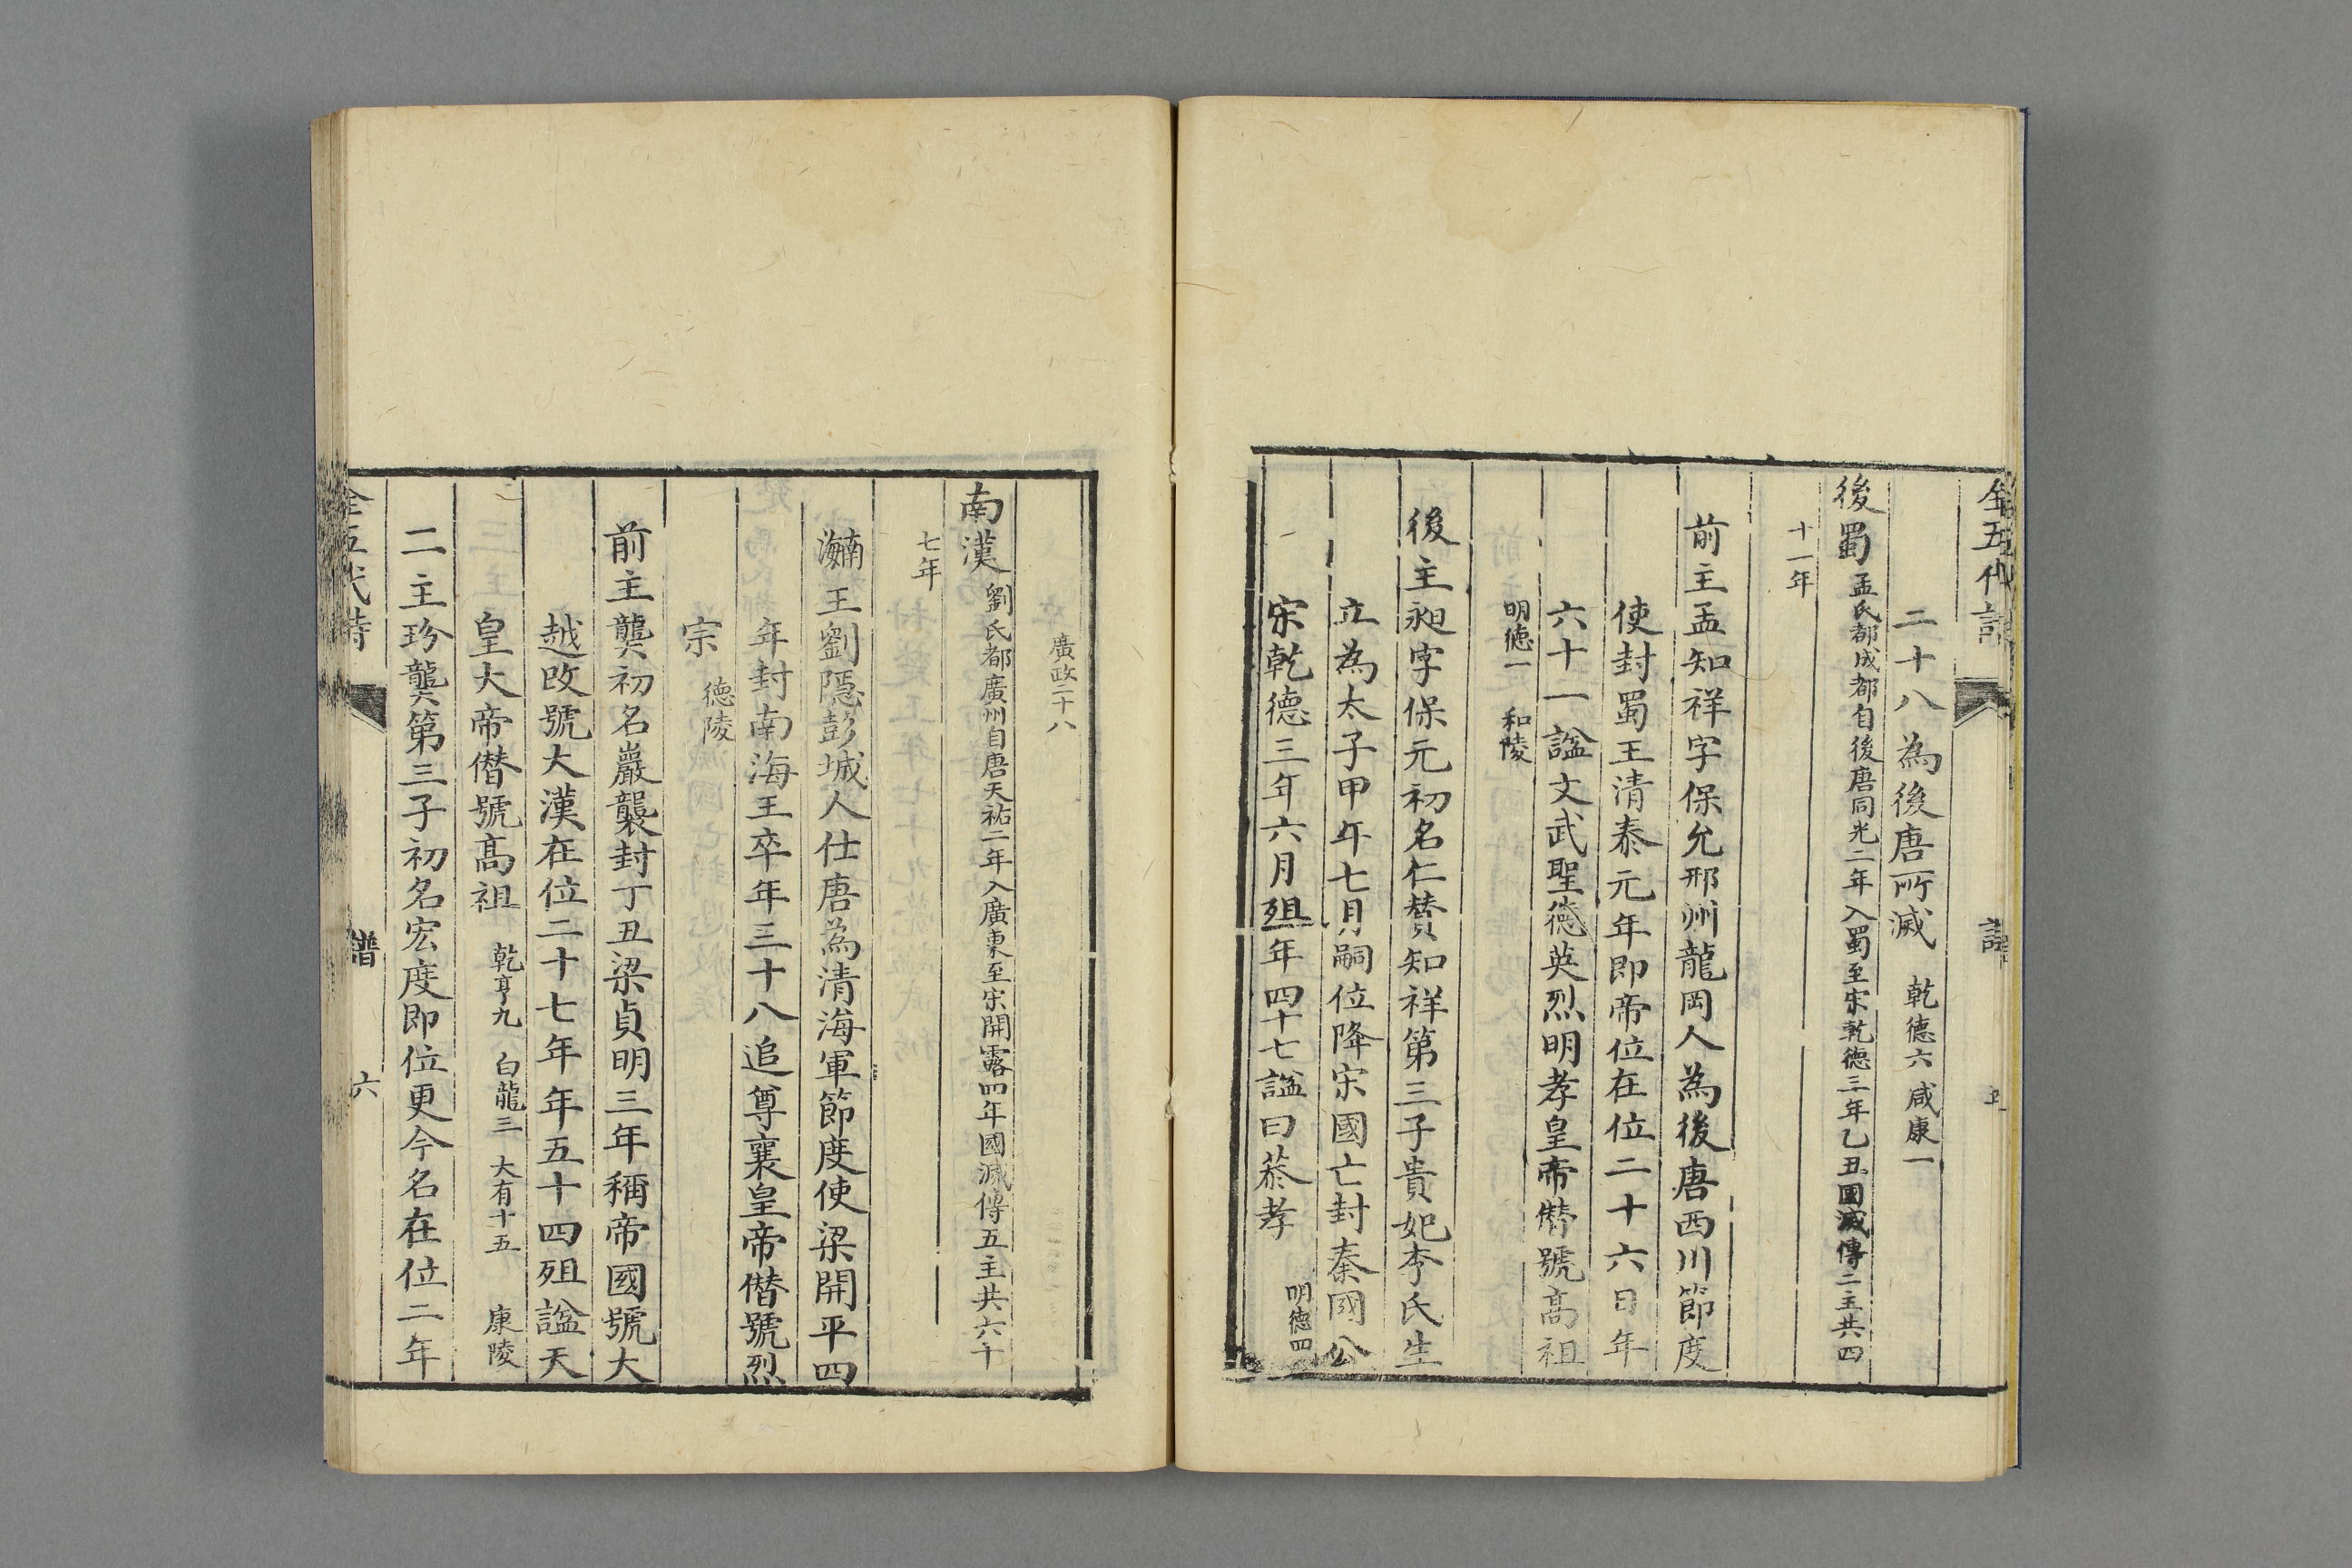 全五代詩 譜 五
二十八為後唐所滅 乾德六 咸康一
後蜀 孟氏都成都自後唐同光二年入蜀至宋乾德三年乙丑國滅傳二主共四
十一年
前主孟知祥字保允邢州龍岡人為後唐西川節度
使封蜀王清泰元年即帝位在位二十六日年
六十一諡文武聖德英烈明孝皇帝僣號高祖
明德一 和陵
後主昶字保元初名仁贊知祥第三子貴妃李氏生
立為太子甲午七月嗣位降宋國亡封秦國公
宋乾德三年六月殂年四十七諡曰恭孝 明德四
廣政二十八
南漢 劉氏都廣州自唐天祐二年入廣東至宋開寶四年國滅傳五主共六十
七年
南海王劉隱彭城人仕唐為清海軍節度使梁開平四
年封南海王卒年三十八追尊襄皇帝僣號烈
宗 德陵
前主龑初名巖襲封丁丑梁貞明三年稱帝國號大
越改號大漢在位二十七年年五十四殂諡天
皇大帝僣號高祖 乾亨九 白龍三 大有十五 康陵
二主玢龑第三子初名宏度即位更今名在位二年
全五代詩 譜 六